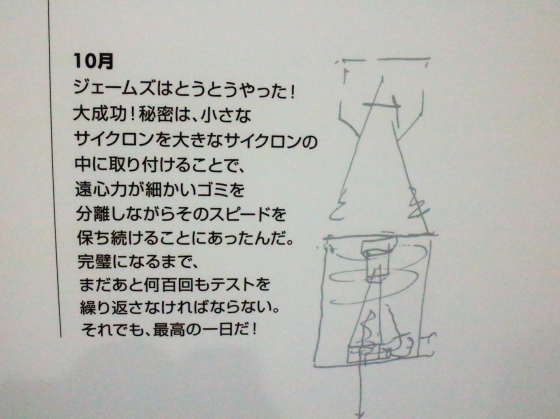 10月
ジェームズはとうとうやった！
大成功！秘密は、小さな
サイクロンを大きなサイクロンの
中に取り付けることで、
遠心力が細かいゴミを
分離しながらそのスピードを
保ち続けることにあったんだ。
完璧になるまで、
まだあと何百回もテストを
繰り返さなければならない。
それでも、最高の一日だ！